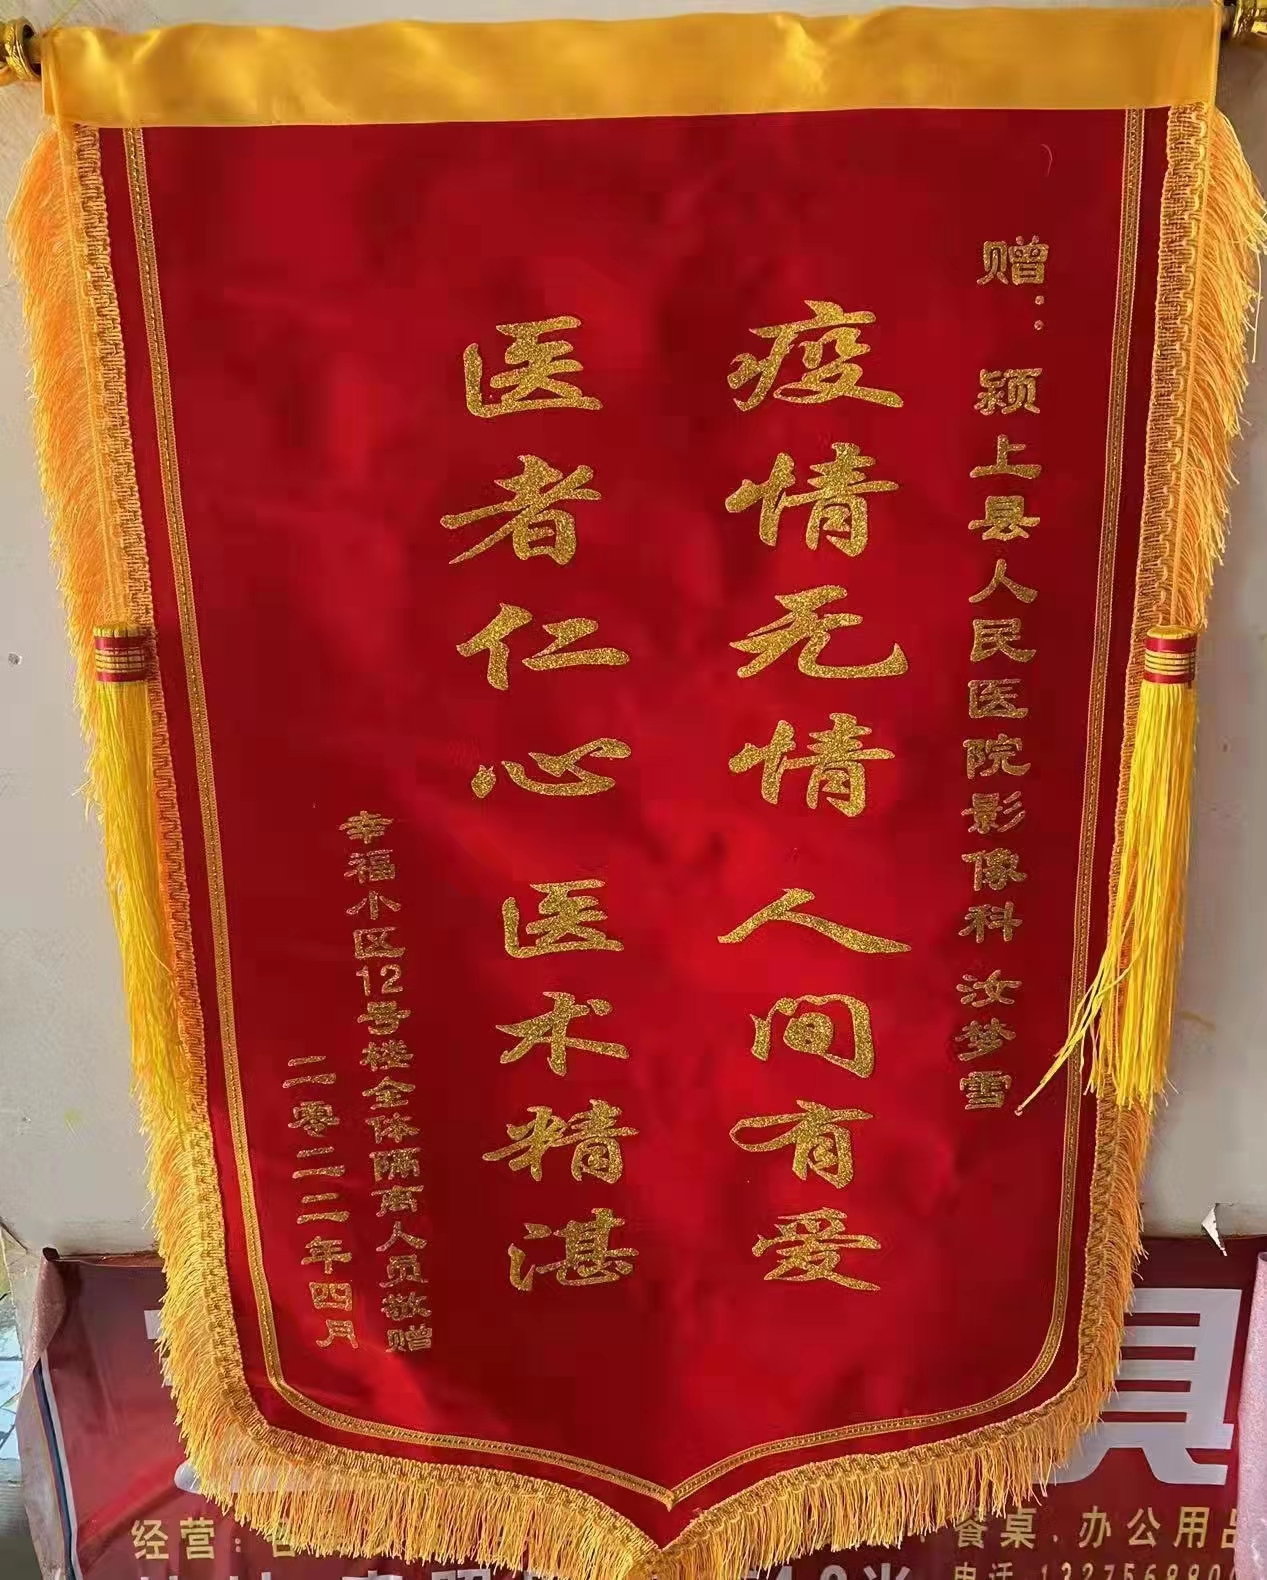 赠：颍上县人民医院影像科 汝梦雪
疫情无情人间有爱
医者仁心医术精湛
幸福小区12号楼全体隔离人员敬赠
二零二二年四月
具
经营：
餐桌、办公用品
电话